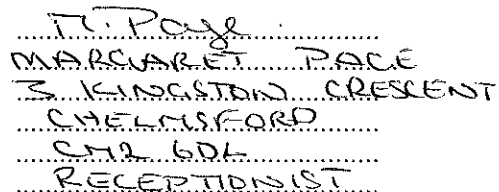 M. Page
MARGARET PAGE
3 KINGSTON CRESCENT
CHELMSFORD
CM2 6DL
RECEPTIONIST